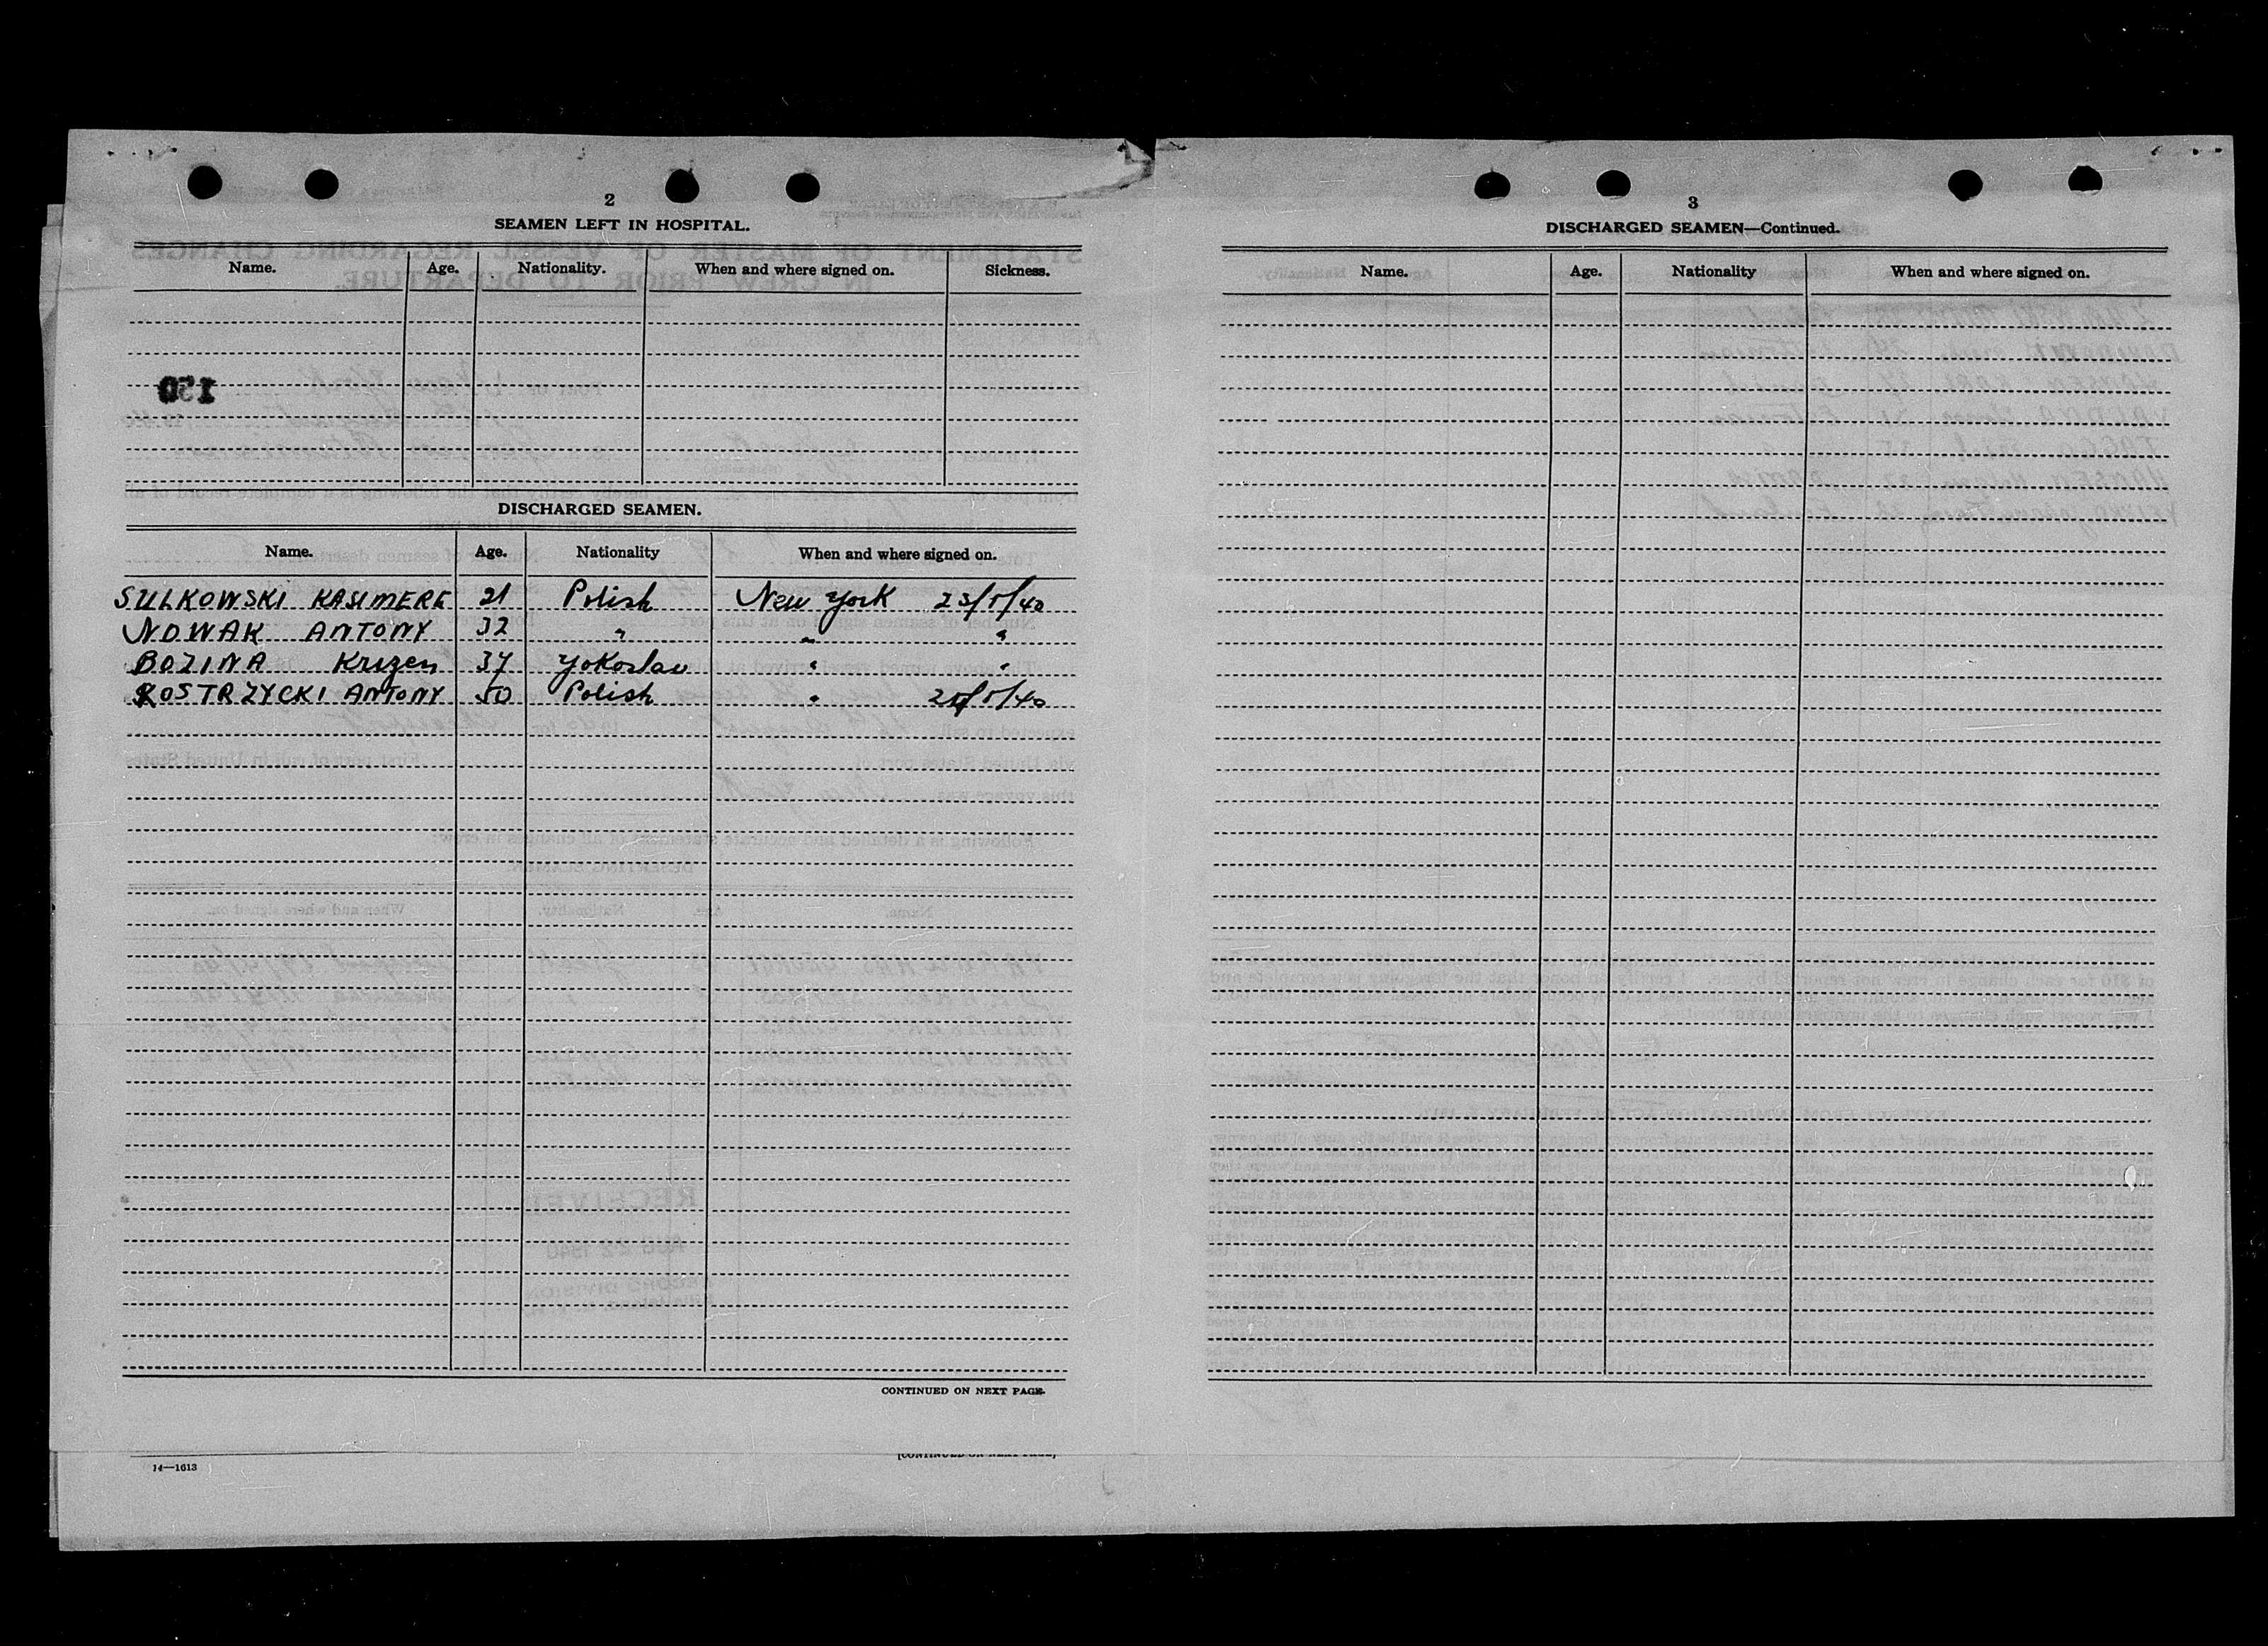 2
SEAMEN LEFT IN HOSPITAL.
Name. Age. Nationality. When and where signed on. Sickness.
130
DISCHARGED SEAMEN.
Name. Age. Nationality When and where signed on.
SULKOWSKI KASIMERE 21 Polish New York 23/5/40
NOWAK ANTONY 32 " " "
BOZINA Krizen 37 Yokoslav " "
KOSTRZYCKI ANTONY 50 Polish " /5/40
CONTINUED ON NEXT PAGE.
[CONTINUED ON NEXT PAGE]
14—1613
3
DISCHARGED SEAMEN—Continued.
Name. Age. Nationality When and where signed on.